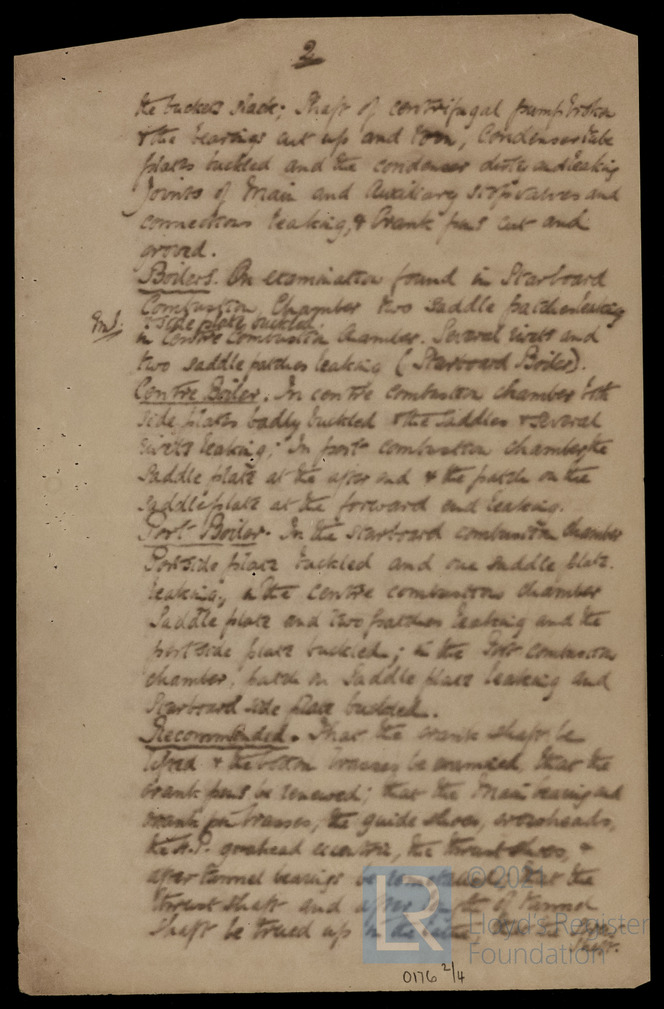 2
the buckets slack; Shaft of centrifugal pump broken
& the bearings cut up and torn, Condenser tube
plates buckled and the condenser dirty and leaking
Joints of Main and Auxiliary stop valves and
connections leaking, & Crank pins cut and
groved.
Boilers. On examination found in Starboard
Combustion Chamber two saddle patches leaking
& side plate buckled.
in Centre Combustion Chamber. Several rivets and
two saddle patches leaking (Starboard Boiler).
Centre Boiler. In centre combustion chamber both
side plates badly buckled & the saddles & several
rivets leaking; In port combustion chamber the
Saddle plate at the after end & the patch on the
saddle plate at the forward end leaking.
Port Boiler. In the starboard combustion chamber
Portside plate buckled and one saddle plate
leaking, in the centre combustion chamber
Saddle plate and two patches leaking and the
port side plate buckled; in the Port combustion
chamber, patch on Saddle plate leaking and
Starboard side plate buckled.
Recommended. That the crank shaft be
lifted & the bottom brasses be examined, that the
crank pins be renewed; that the Main bearing and
crank pin brasses, the guide shoes, crossheads,
the H.P. gohead eccentric, the thrust shoes, &
after tunnel bearings be that the
thrust shaft and after of tunnel
Shaft be trued up in
Shaft.
0176 2/4
LR
© 2021
Lloyd's Register
Foundation